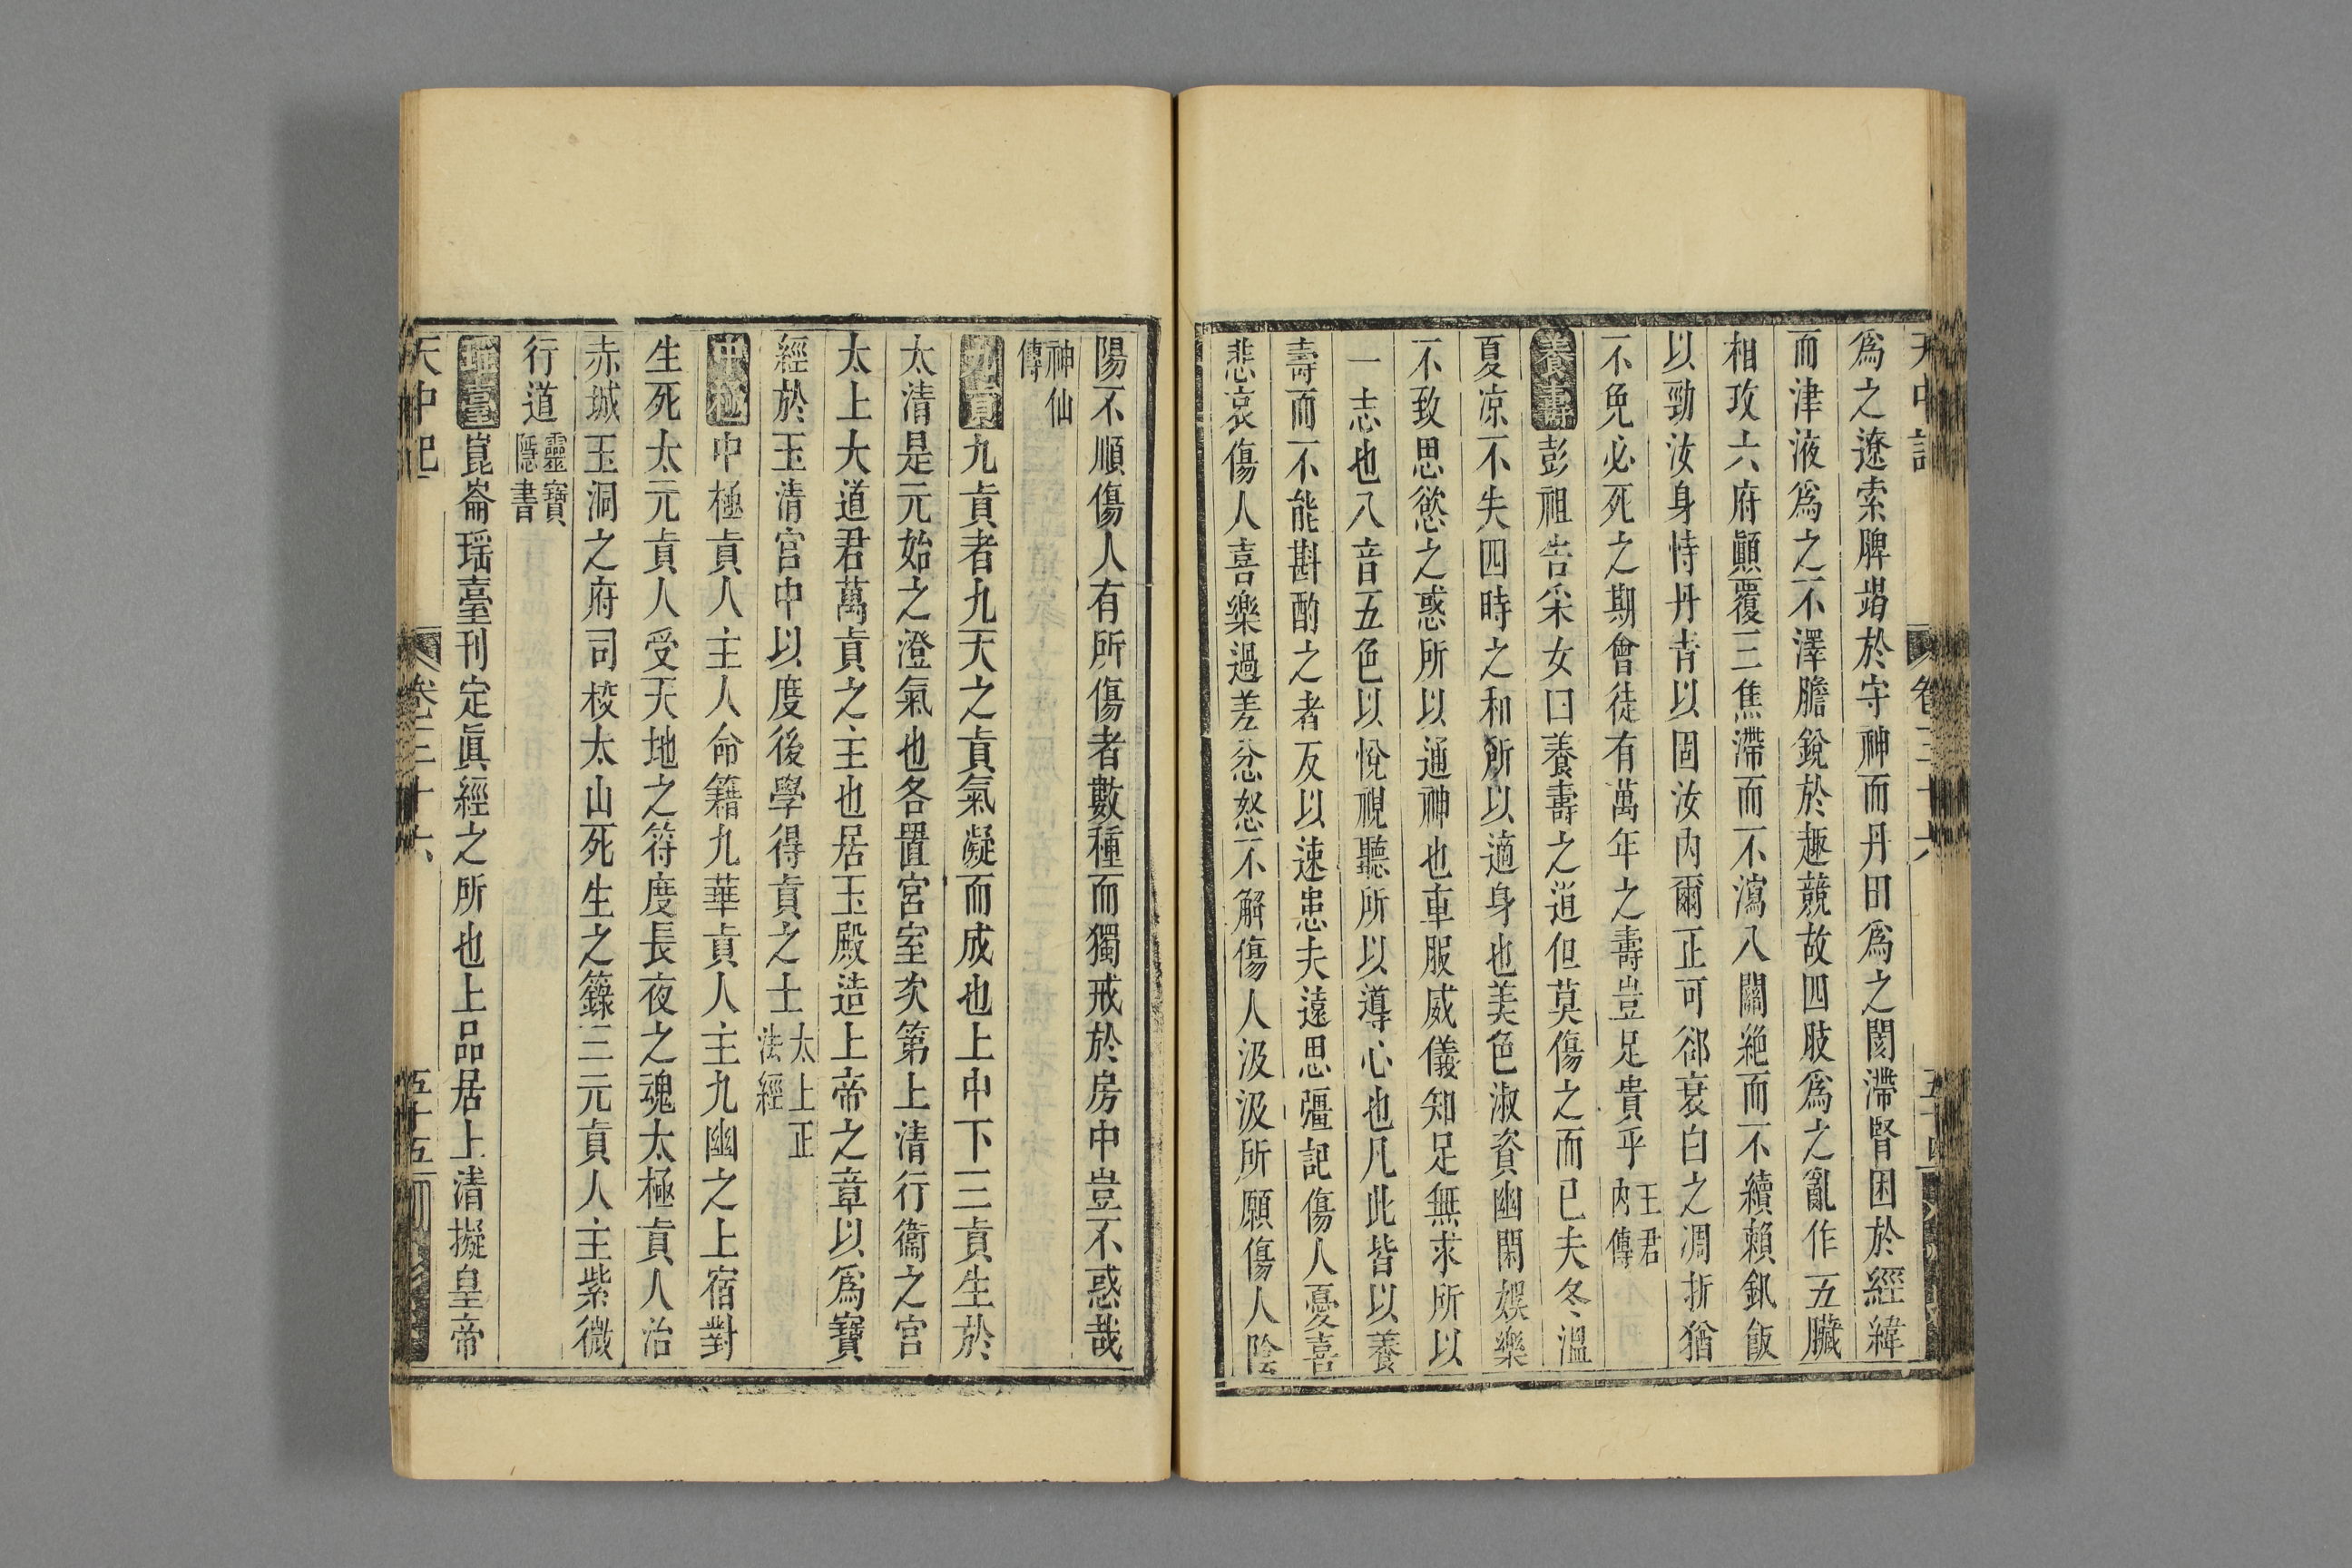 天中記 卷三十六 五十四
爲之遼索脾竭於守神而丹田爲之閡滯腎困於經緯
而津液爲之不澤膽銳於趣競故四肢爲之亂作五臟
相攻六府顚覆三焦滯而不瀉八關絶而不續賴飲飯
以勁汝身恃丹青以固汝內爾正可郤衰白之凋折猶
不免必死之期會徒有萬年之壽豈足貴乎王君內傳
養壽彭祖告采女曰養壽之道但莫傷之而已夫冬溫
夏凉不失四時之和所以適身也美色淑資幽閑娛樂
不致思慾之惑所以通神也車服威儀知足無求所以
一志也八音五色以悅視聽所以導心也凡此皆以養
壽而不能斟酌之者反以速患夫遠思彊記傷人憂喜
悲哀傷人喜樂過差忿怒不解傷人汲汲所願傷人陰
陽不順傷人有所傷者數種而獨戒於房中豈不惑哉
神仙傳
九貞九貞者九天之貞氣凝而成也上中下三貞生於
太清是元始之澄氣也各置宮室次第上清行衞之宮
太上大道君萬貞之主也居玉殿造上帝之章以爲寶
經於玉清宮中以度後學得貞之士太上正法經
中極中極貞人主人命籍九華貞人主九幽之上宿對
生死太元貞人受天地之符度長夜之魂太極貞人治
赤城玉洞之府司校太山死生之籙三元貞人主紫微
行道靈寶隱書
瑶臺崑崙瑶臺刊定眞經之所也上品居上清擬皇帝
天中記 卷三十六 五十五